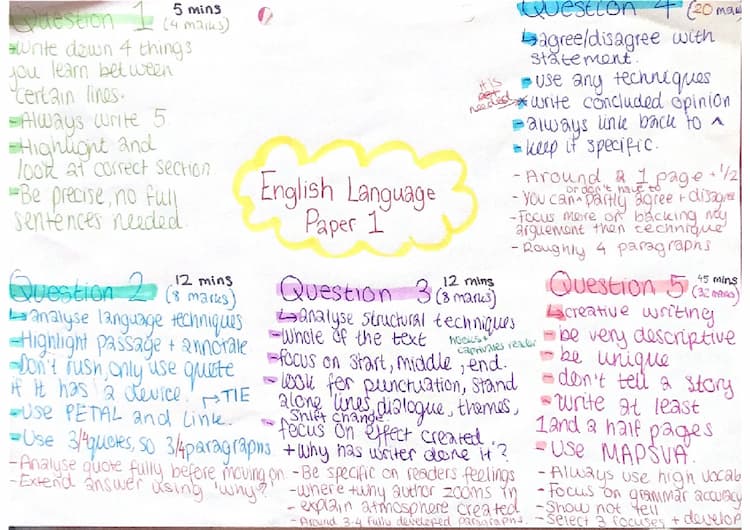 English Language
Paper 1
Question 1 5 mins
(4 marks)
-Write down 4 things
you learn between
certain lines.
-Always write 5.
-Highlight and
look at correct section
-Be precise, no full
sentences needed.
Question 2 12 mins
(8 marks)
↳analyse language techniques
-Highlight passage + annotate
-Don't rush, only use quote
if it has a device. →TIE
-Use PETAL and Link.
-Use 3/4quotes, so 3/4paragraphs
-Analyse quote fully before moving on.
-Extend answer using 'why?'
Question 3 12 mins
(8 marks)
↳analyse structural techniques
-Whole of the text
captivates reader
-focus on start, middle, end.
-look for punctuation, stand
alone lines, dialogue, themes,
shift change
focus on effect created
+why has writer done it?
-Be specific on readers feelings
-where+why author zooms in
-explain atmosphere created
-Around 3-4 fully developed paragraphs.
Question 4 (20 ma
↳agree/disagree with
statement.
-use any techniques
it is
needed
*write concluded opinion
-always link back to ^
-keep it specific.
-Around 1 page +1/2
or don't have to
-You can partly agree + disagree
-Focus more on backing my
arguement then technique
-Roughly 4 paragraphs
Question 5 45 mins
marks)
↳creative writing
-be very descriptive
-be unique
-don't tell a story
-write at least
1 and 2 half pages
-Use MAPSVA.
-Always use high vocab
-Focus on grammar accuracy
-Show not tell
-Select a focus + develop